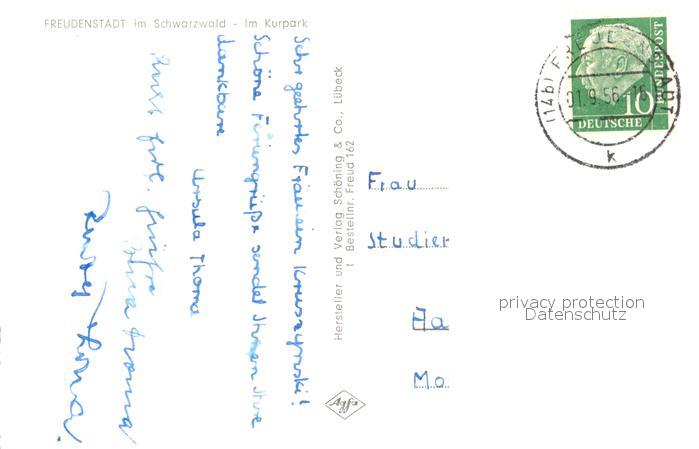 FREUDENSTADT im Schwarzwald - Im Kurpark
Sehr geehrtes Fräulein Kruszynski!
Schöne Feriengrüße sendet Ihnen Ihre
dankbare
Ursula Thoma
frdl. Grüße
Thoma
Thoma.
Hersteller und Verlag Schöning & Co., Lübeck
1 Bestellnr. Freud 162
Agfa
(14b) FREUDENSTADT
01.9.56-16
k
10
DEUTSCHE
BUNDESPOST
Frau
Studier
Ha
Mo
privacy protection
Datenschutz